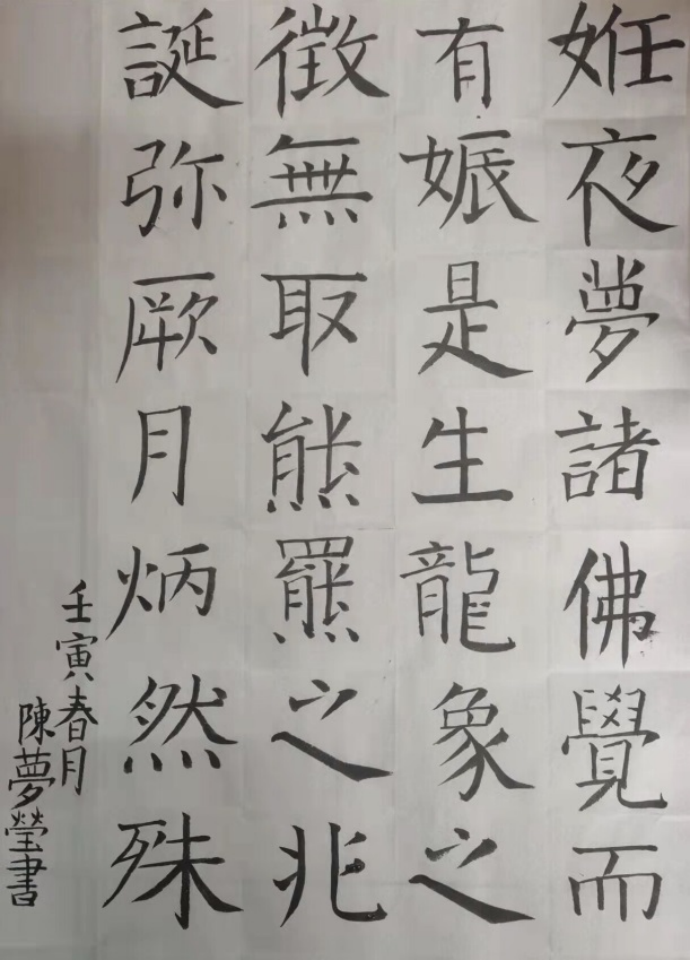 妊夜夢諸佛覺而
有娠是生龍象之
徵無取熊羆之兆
誕弥厥月炳然殊
壬寅春月
陳夢瑩書